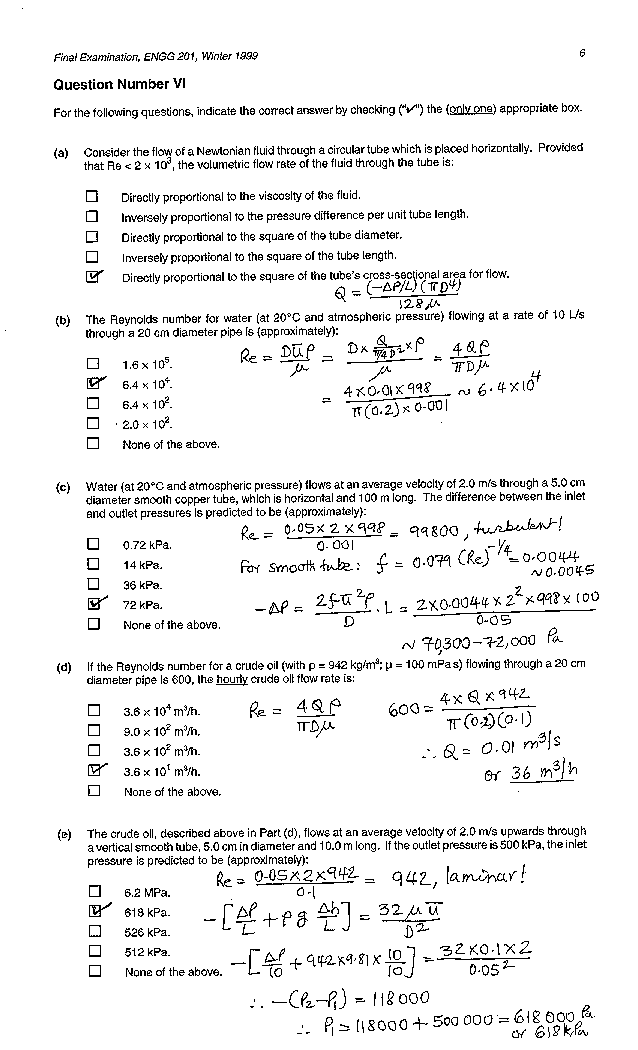 Final Examination, ENGG 201, Winter 1999
6
Question Number VI
For the following questions, indicate the correct answer by checking ("✔") the (only one) appropriate box.
(a) Consider the flow of a Newtonian fluid through a circular tube which is placed horizontally. Provided
that Re < 2 x 10³, the volumetric flow rate of the fluid through the tube is:
☐ Directly proportional to the viscosity of the fluid.
☐ Inversely proportional to the pressure difference per unit tube length.
☐ Directly proportional to the square of the tube diameter.
☐ Inversely proportional to the square of the tube length.
☑ Directly proportional to the square of the tube's cross-sectional area for flow.
Q = (-ΔP/L)(πD⁴) / 128μ
(b) The Reynolds number for water (at 20°C and atmospheric pressure) flowing at a rate of 10 L/s
through a 20 cm diameter pipe is (approximately):
Re = DŪρ / μ = D x Q/(π/4 D²) x ρ / μ = 4Qρ / πDμ
☐ 1.6 x 10⁵.
☑ 6.4 x 10⁴.
= 4x0.01x998 / π(0.2)x0.001 ~ 6.4x10⁴
☐ 6.4 x 10².
☐ 2.0 x 10².
☐ None of the above.
(c) Water (at 20°C and atmospheric pressure) flows at an average velocity of 2.0 m/s through a 5.0 cm
diameter smooth copper tube, which is horizontal and 100 m long. The difference between the inlet
and outlet pressures is predicted to be (approximately):
Re = 0.05x2x998 / 0.001 = 99800, turbulent!
☐ 0.72 kPa.
☐ 14 kPa.
For smooth tube: f = 0.079 (Re)^-1/4 = 0.0044
~0.0045
☐ 36 kPa.
☑ 72 kPa.
-ΔP = 2fŪ²ρ / D . L = 2x0.0044x2²x998x100 / 0.05
☐ None of the above.
~ 70,300-72,000 Pa
(d) If the Reynolds number for a crude oil (with ρ = 942 kg/m³; μ = 100 mPa s) flowing through a 20 cm
diameter pipe is 600, the hourly crude oil flow rate is:
☐ 3.6 x 10⁴ m³/h.
Re = 4Qρ / πDμ
600 = 4xQx942 / π(0.2)(0.1)
☐ 9.0 x 10² m³/h.
☐ 3.6 x 10² m³/h.
∴ Q = 0.01 m³/s
☑ 3.6 x 10¹ m³/h.
or 36 m³/h
☐ None of the above.
(e) The crude oil, described above in Part (d), flows at an average velocity of 2.0 m/s upwards through
a vertical smooth tube, 5.0 cm in diameter and 10.0 m long. If the outlet pressure is 500 kPa, the inlet
pressure is predicted to be (approximately):
Re = 0.05x2x942 / 0.1 = 942, laminar!
☐ 6.2 MPa.
☑ 618 kPa.
-[ΔP/L + ρg Δh/L] = 32μŪ / D²
☐ 526 kPa.
☐ 512 kPa.
☐ None of the above.
-[ΔP/10 + 942x9.81x 10/10] = 32x0.1x2 / 0.05²
∴ -(P₂-P₁) = 118000
∴ P₁ = 118000 + 500 000 = 618 000 Pa
or 618 kPa